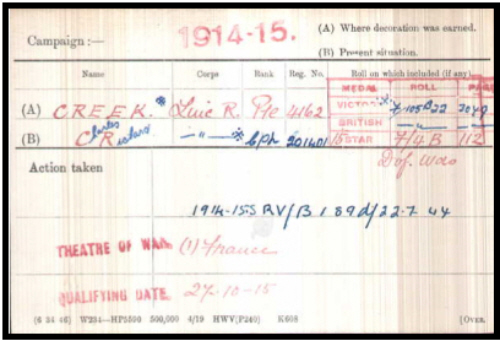 Campaign:— 1914-15.
(A) Where decoration was earned.
(B) Present situation.
Name Corps Rank Reg. No. Roll on which included (if any).
MEDAL ROLL PAGE
(A) CREEK. Linc R. Pte 4162 VICTORY
(B) Charles Richard —"— 201401 BRITISH —"—
15 STAR 7/4B 112
D of Wds
Action taken
THEATRE OF WAR. (1) France
QUALIFYING DATE. 27-10-15
(6 34 46) W234—HP5590 500,000 4/19 HWV(P240) K608 [OVER.